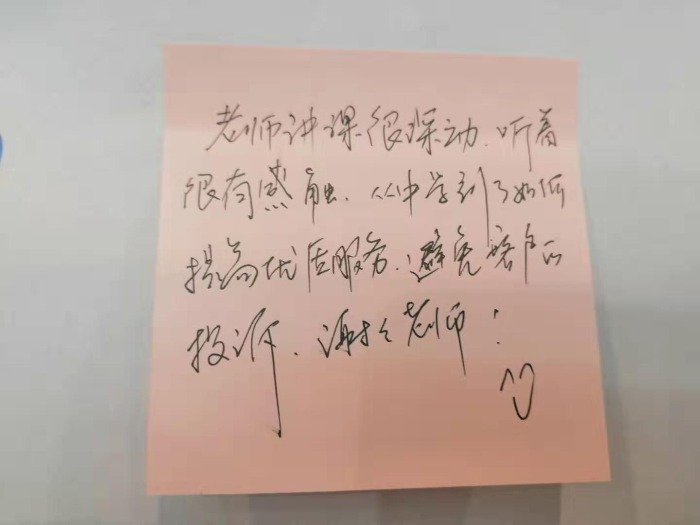 老师讲课很深动、听着
很有感触、从中学到了如何
提高优质服务、避免客户的
投诉、谢谢老师!